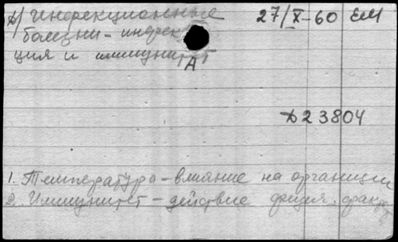 А/ Инфекционные 27/X-60 ЕМ
болезни - инфек
ция и иммунитет
А
Д23804
1. Температура - влияние на организм
2. Иммунитет - действие физич. факт